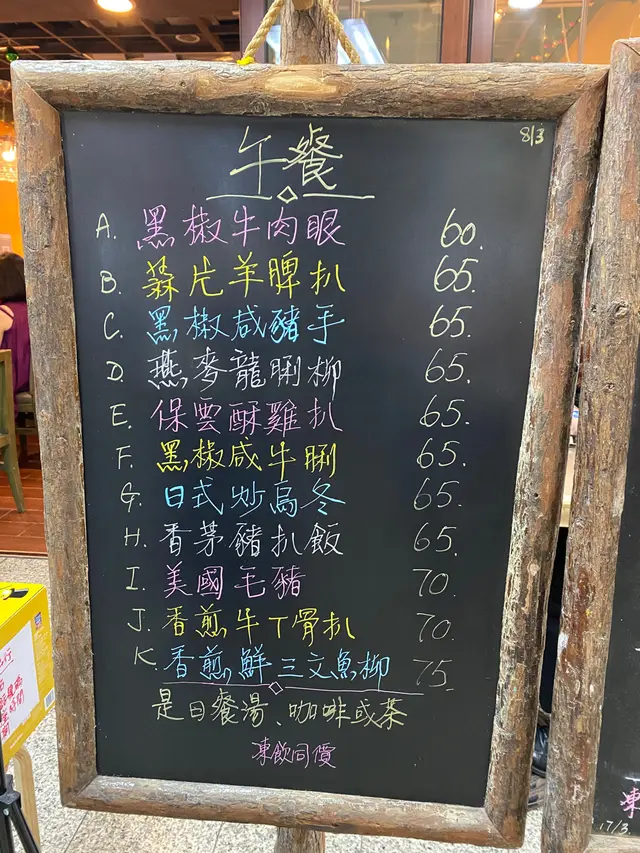 8/3
午餐
A. 黑椒牛肉眼 60.
B. 蒜片羊脾扒 65.
C. 黑椒咸豬手 65.
D. 燕麥龍脷柳 65.
E. 保雲酥雞扒 65.
F. 黑椒咸牛脷 65.
G. 日式炒烏冬 65.
H. 香茅豬扒飯 65.
I. 美國毛豬 70.
J. 香煎牛T骨扒 70.
K. 香煎鮮三文魚柳 75.
是日餐湯、咖啡或茶
凍飲同價
凍
17/3